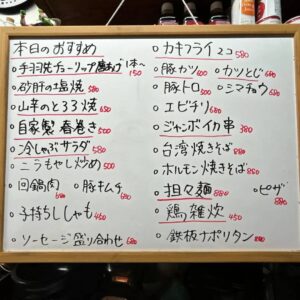 本日のおすすめ
手羽先チューリップ唐あげ 1本〜150
砂肝の塩焼 580
山芋のとろろ焼 650
自家製 春巻き 500
冷しゃぶサラダ 580
ニラもやし炒め 500
回鍋肉 680
豚キムチ 680
子持ちししゃも 450
ソーセージ盛り合わせ 680
カキフライ 2コ 580
豚カツ 600
カツとじ 680
豚トロ 500
シマチョウ 680
エビチリ 680
ジャンボイカ串 380
台湾焼きそば 880
ホルモン焼きそば 850
担々麺 880
ピザ
鶏雑炊 450
鉄板ナポリタン 880